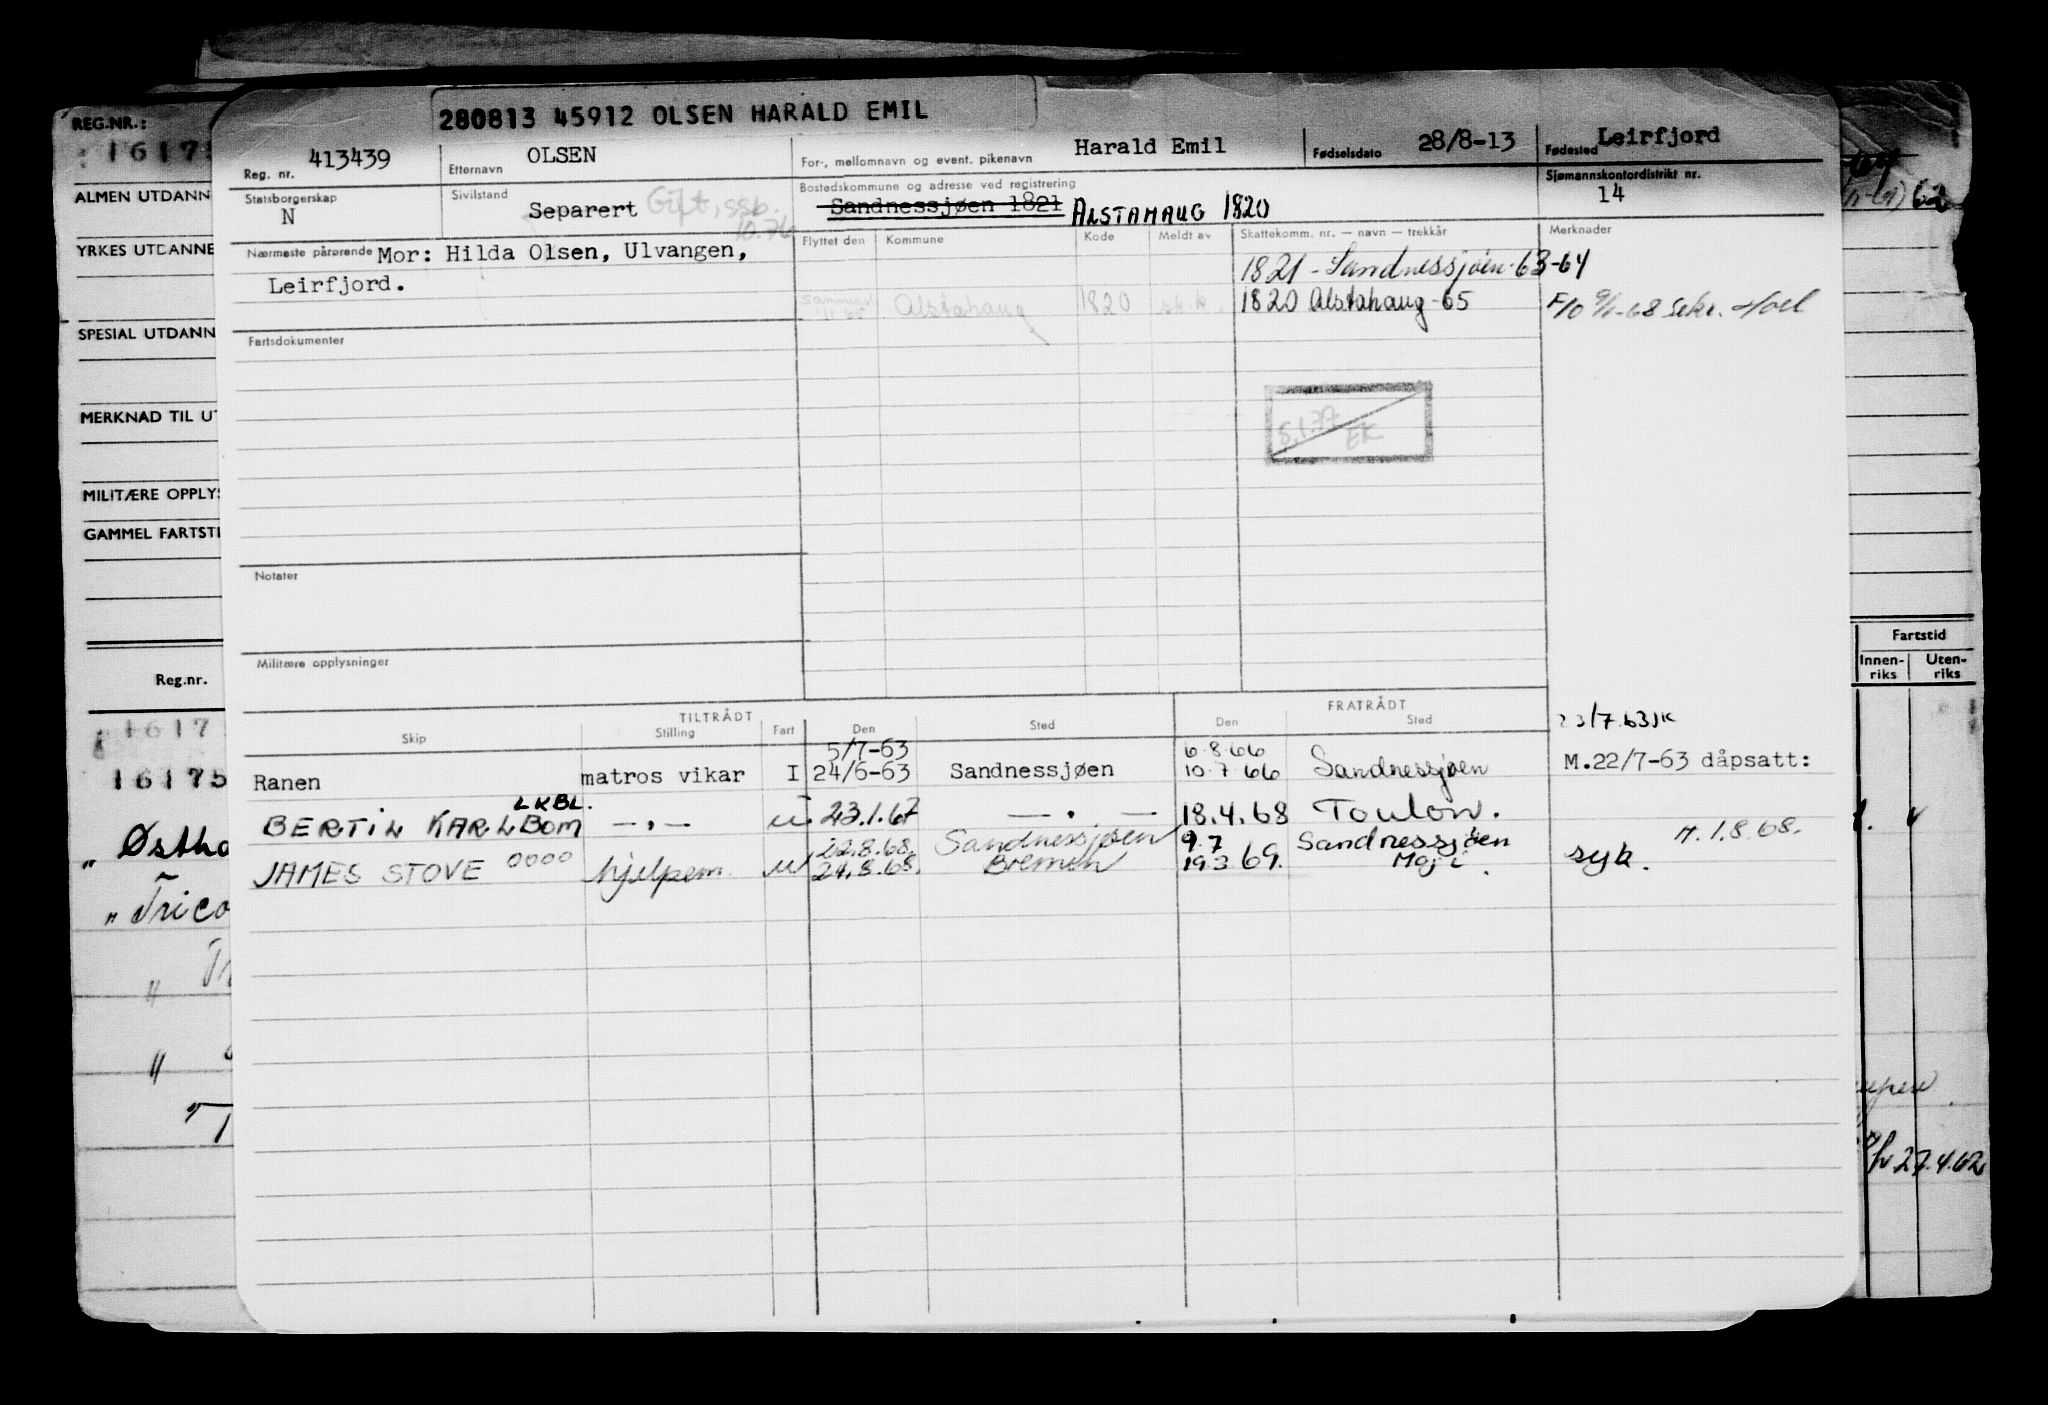 280813 45912 OLSEN HARALD EMIL
REG.NR.:
Reg. nr. 413439 Etternavn OLSEN For-, mellomnavn og event. pikenavn Harald Emil Fødselsdato 28/8-13 Fødested Leirfjord
Statsborgerskap N Sivilstand Separert Gift, ssb. 10.76 Bostedskommune og adresse ved registrering Sandnessjøen 1821 ALSTAHAUG 1820 Sjømannskontordistrikt nr. 14
62
Nærmeste pårørende Mor: Hilda Olsen, Ulvangen, Leirfjord.
Flyttet den Kommune Kode Meldt av Skattekomm. nr. — navn — trekkår Merknader
1821 - Sandnessjøen - 63-64
Alstahaug 1820 1820 Alstahaug - 65
Fartsdokumenter
5.1.77 EK
Notater
Militære opplysninger
TILTRÅDT FRATRÅDT
Skip Stilling Fart Den Sted Den Sted
23/7.63JK
5/7-63 6.8.66
Ranen matros vikar I 24/6-63 Sandnessjøen 10.7.66 Sandnessjøen M.22/7-63 dåpsatt:
LKBL.
BERTIL KARLBOM —„— u. 23.1.67 —„— 18.4.68 Toulon.
22.8.68. Sandnessjøen 9.7 Sandnessjøen H. 1.8.68.
JAMES STOVE 0000 hjelpem. u 24.8.68. Bremen 19.3 69. Moji. syk.
ALMEN UTDANN
YRKES UTDANNE
SPESIAL UTDANN
MERKNAD TIL UT
MILITÆRE OPPLYS
GAMMEL FARTSTI
Reg.nr.
16175
„ Østha
„ Trico
Fartstid
Innen-riks Uten-riks
27.4.62